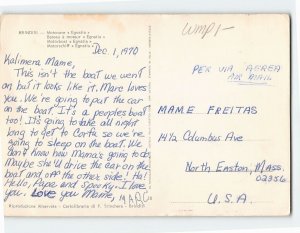 BRINDISI — Motonave « Egnatia »
Bateau à moteur « Egnatia »
Motorboat « Egnatia »
Motorschiff « Egnatia »
Dec 1, 1970
Kalimera Mame,
This isn't the boat we went
on but it looks like it. Marc loves
you. We're going to put the car
on the boat. It's a peoples boat
too! It's going to take all night
long to get to Corfu so we're
going to sleep on the boat. We
don't know how Mama's going to do.
Maybe she'll drive the car on the
boat and off the other side! Ha!
Hello, Papa and Spooky. I love
you. Love you Mame, MARC
Riproduzione Vietata - Cartolibraria di P. Brindisi
WMP1-
PER VIA AEREA
AIR MAIL
MAME FREITAS
142 Columbus Ave
North Easton, Mass.
02356
U.S.A.